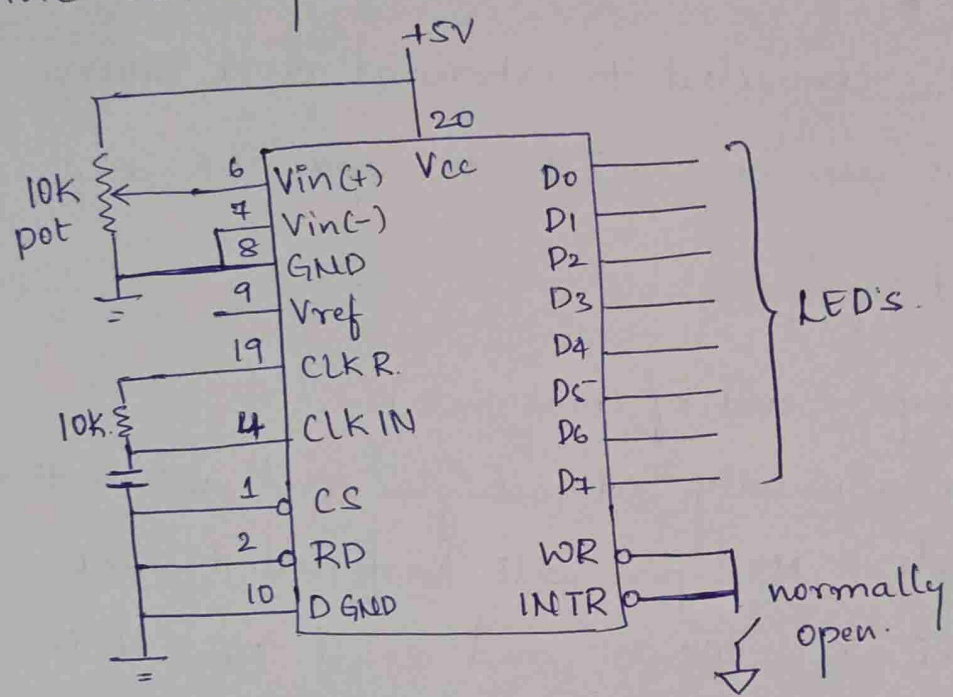 +5V
20
10K
pot
6
Vin(+)
Vcc
D0
7
Vin(-)
D1
8
GND
D2
9
Vref
D3
LED'S.
19
CLK R.
D4
10K.
4
CLK IN
D5
D6
1
CS
D7
2
RD
WR
10
D GND
INTR
normally
open.